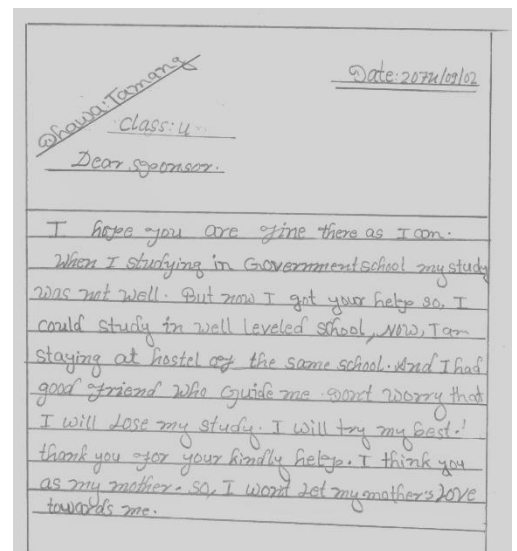 Date: 2074/09/02
Dhawa: Tamang
Class: 4
Dear sponsor.
I hope you are fine there as I am.
When I studying in Government school my study
was not well. But now I got your help so, I
could study in well leveled school, Now, I am
staying at hostel of the same school. And I had
good friend who guide me. Dont worry that
I will Lose my study. I will try my best.!
thank you for your kindly help. I think you
as my mother. so, I wont Let my mother's love
towards me.